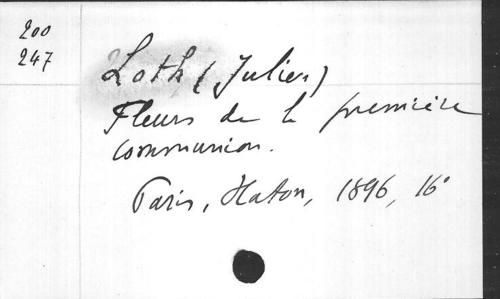 200
247
Loth (Julien)
Fleurs de la première
communion.
Paris, Haton, 1896, 16°